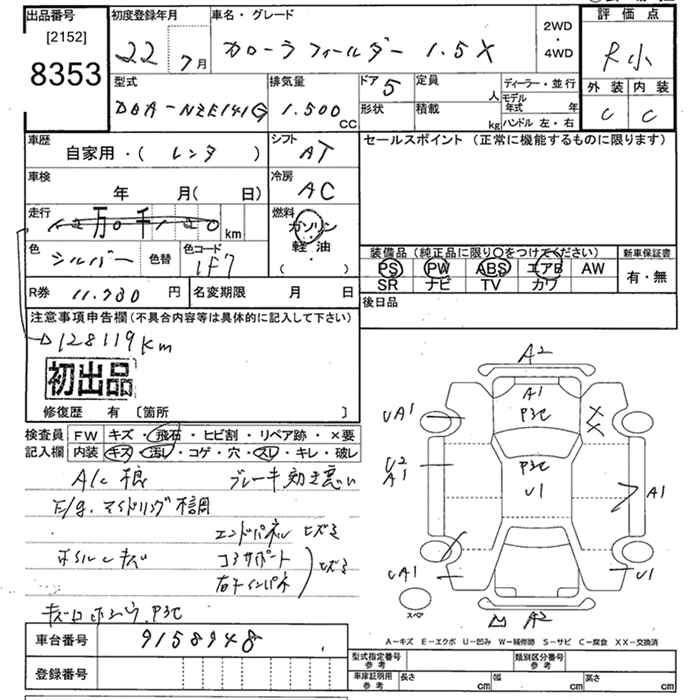 出品番号
[2152]
8353
初度登録年月
22 7月
車名・グレード
カローラフィールダー 1.5X
2WD
・
4WD
評価点
R小
外装 内装
C C
型式
DBA-NZE141G
排気量
1.500 CC
ドア 5
形状
定員 人
積載 kg
ディーラー・並行
モデル年式 年
ハンドル 左・右
車歴
自家用・( レンタ )
シフト
AT
車検
年 月( 日)
冷房
AC
走行
12万0千120 km
燃料
ガソリン
・
軽油
( )
色
シルバー
色替
色コード
1F7
R券 11.780 円
名変期限 月 日
セールスポイント (正常に機能するものに限ります)
装備品(純正品に限り○をつけてください)
PS PW ABS エアB AW
SR ナビ TV カワ
新車保証書
有・無
後日品
注意事項申告欄(不具合内容等は具体的に記入して下さい)
128119Km
初出品
修復歴 有 [箇所 ]
検査員
記入欄
FW キズ・飛石・ヒビ割・リペア跡・×要
内装 キズ・汚レ・コゲ・穴・スレ・キレ・破レ
A/C 狼 ブレーキ効き悪い
E/g.アイドリング不調
エンドパネル ヒズミ
ボルトキズ コアサポート
右インパネ ヒズミ
P3C
A2
A1
P3C
UA1
XX
P3C
U2
A1
U1
A1
UA1
U1
スペア
A2
A-キズ E-エクボ U-凹み W-補修跡 S-サビ C-腐食 XX-交換済
車台番号 9158948
登録番号
型式指定番号
参考
類別区分番号
参考
車庫証明用
参考
長さ cm
幅 cm
高さ cm